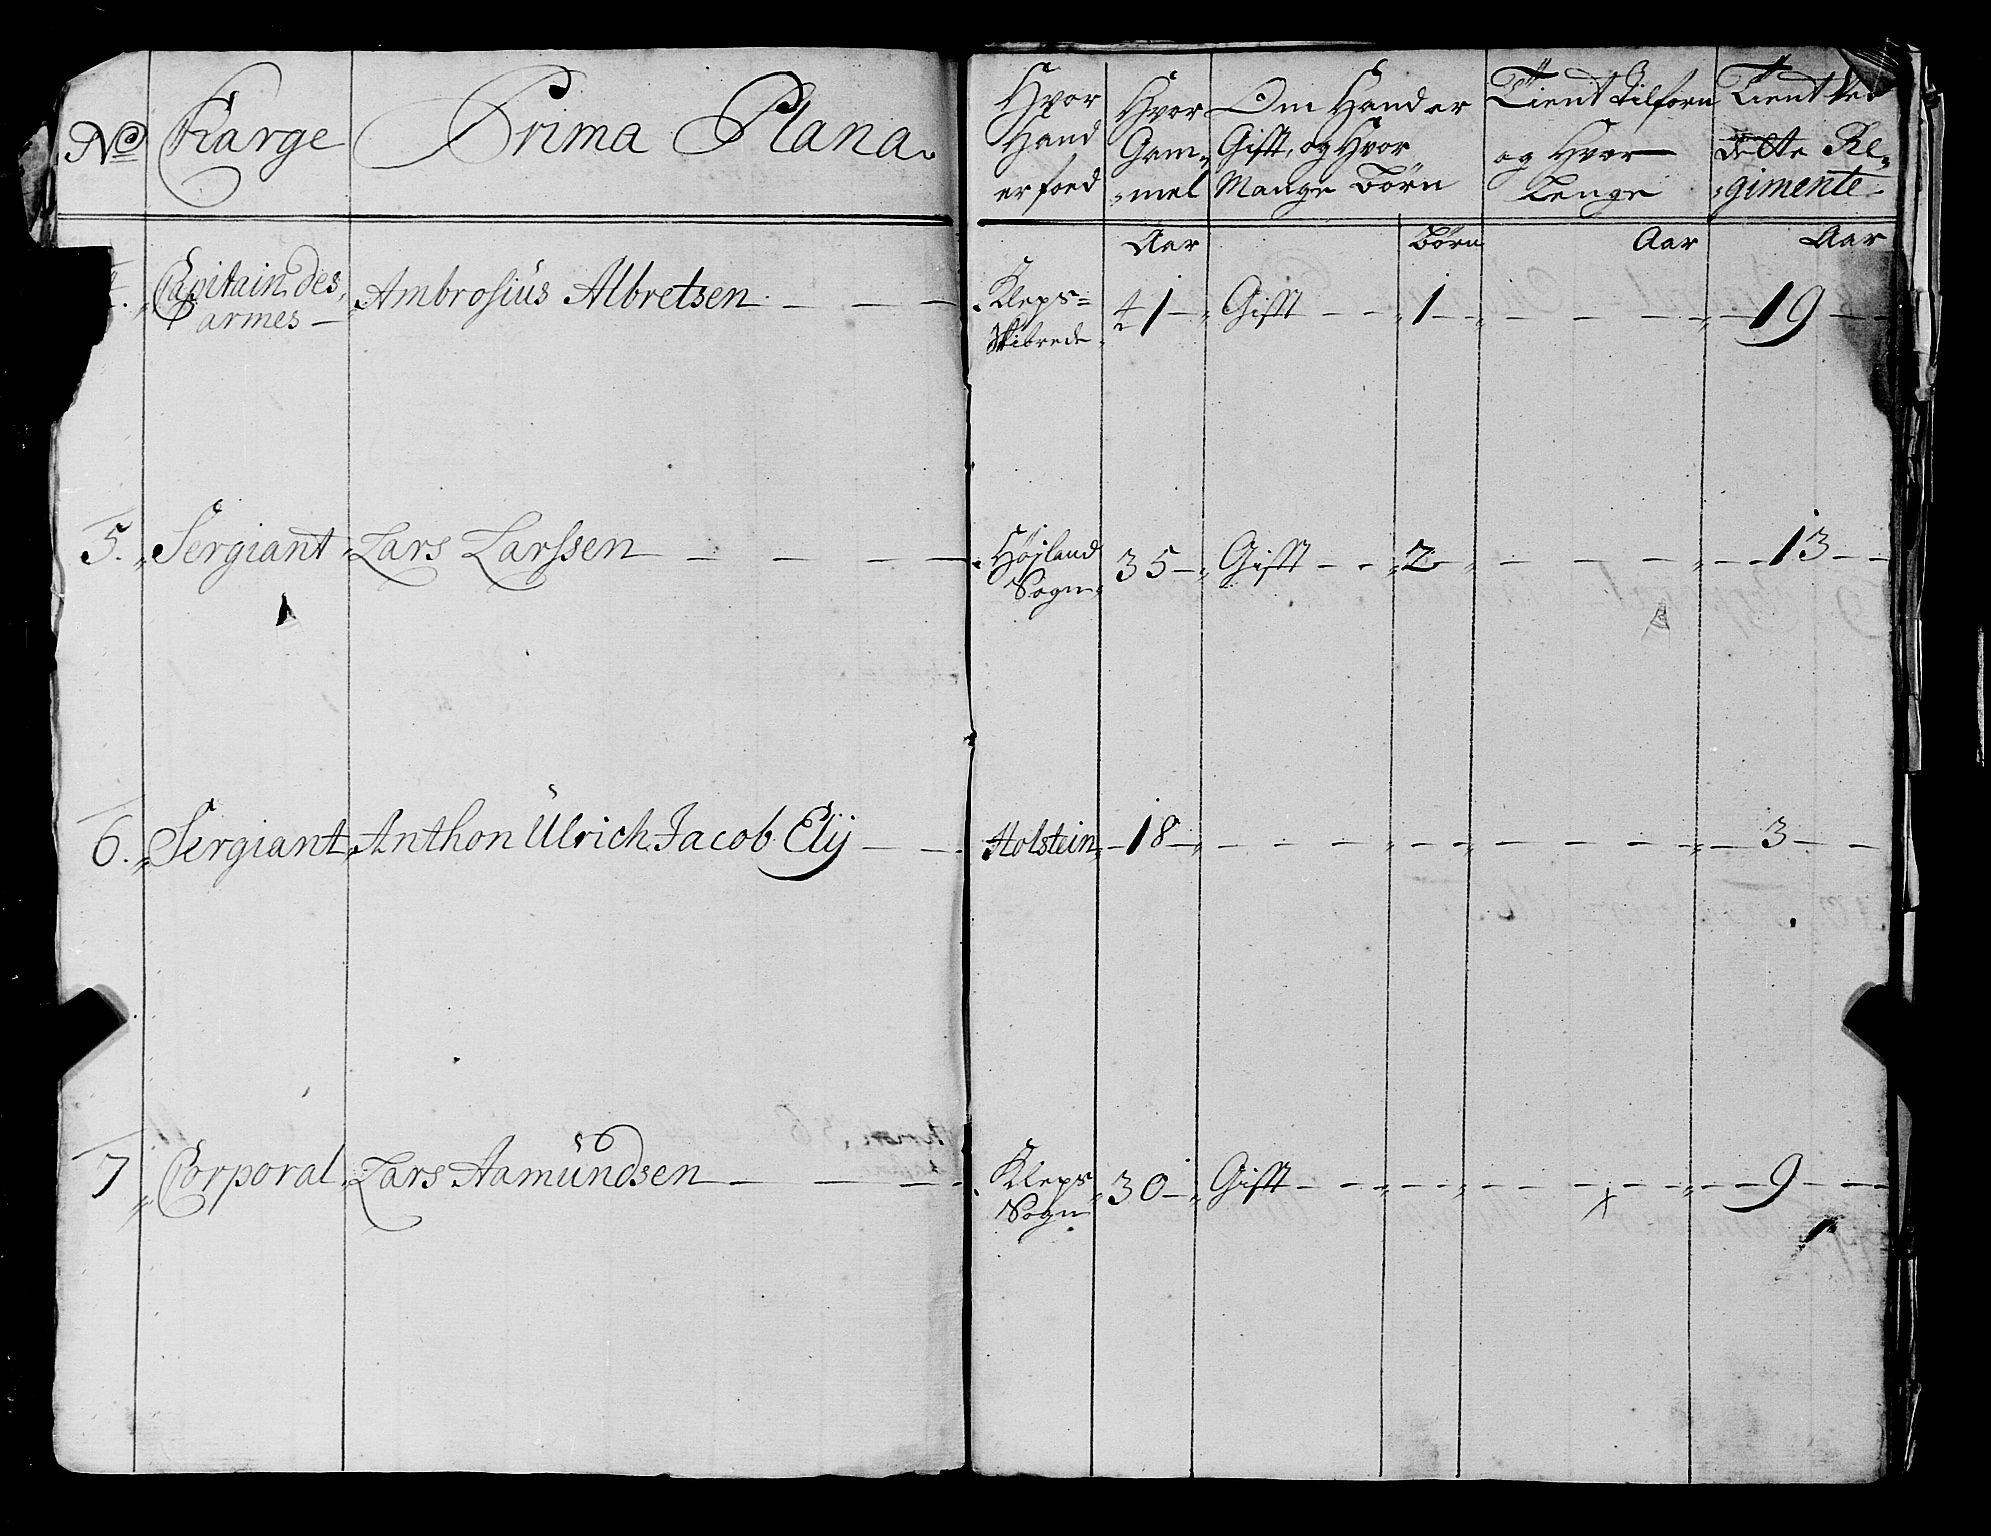 No Karge Prima Plana.
Hvor Hand er foed
Hvor Gam= =mel
Om Hand er Gift, og Hvor Mange Börn
Tient tilforn og Hvor Lenge
Tient ved dette Re= =gimente
Aar Börn Aar Aar
Capitain des armes — Ambrosius Albretsen — Kleps= Skibrede 41 Gift 1 — 19
5. Sergiant Lars Larssen — Höjland Sogn 35 Gift 2 — 13
6. Sergiant Anthon Ülrich Jacob Elÿ — Holstein 18 — 3
7 Corporal Lars Aamündsen — Kleps Sogn 30 Gift — 9